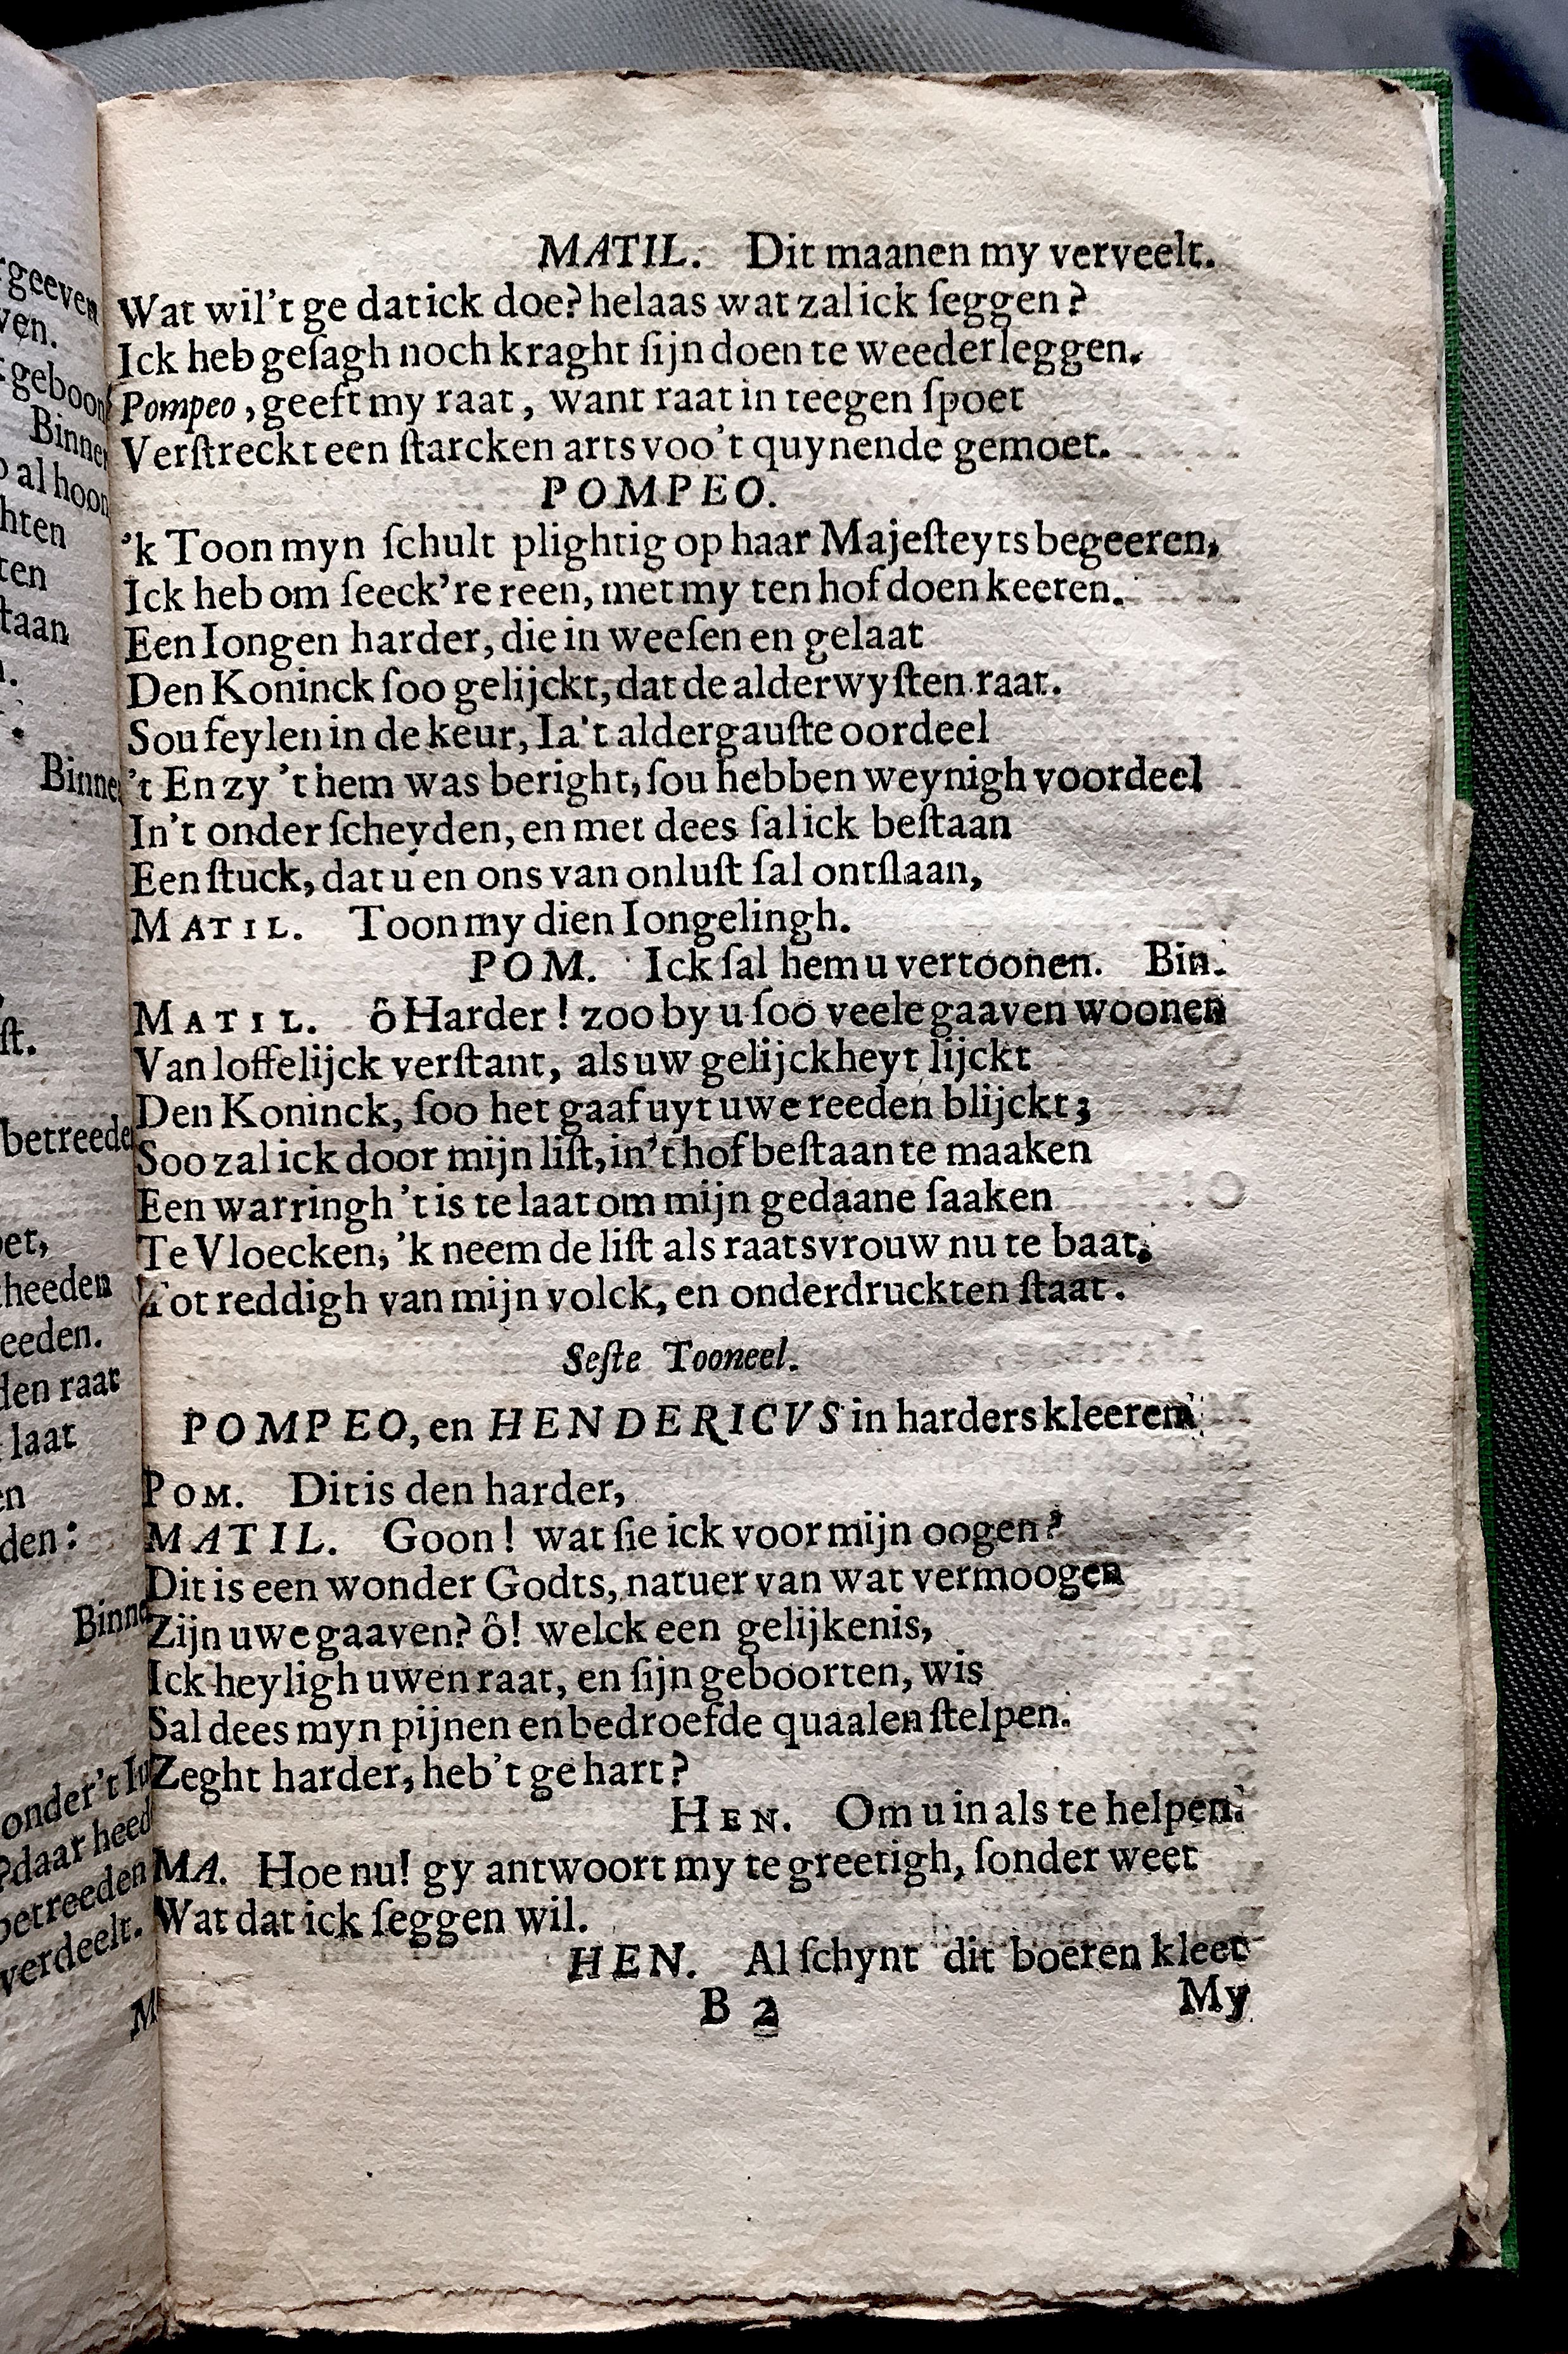 MATIL. Dit maanen my verveelt.
Wat wil't ge dat ick doe? helaas wat zal ick ſeggen?
Ick heb geſagh noch kraght ſijn doen te weederleggen.
Pompeo, geeft my raat, want raat in teegen ſpoet
Verſtreckt een ſtarcken arts voo't quynende gemoet.
POMPEO.
'k Toon myn ſchult plightig op haar Majeſteyts begeeren,
Ick heb om ſeeck're reen, met my ten hof doen keeren.
Een Iongen harder, die in weeſen en gelaat
Den Koninck ſoo gelijckt, dat de alderwyſten raat.
Sou feylen in de keur, Ia't aldergauſte oordeel
't En zy 't hem was beright, ſou hebben weynigh voordeel
In't onder ſcheyden, en met dees ſal ick beſtaan
Een ſtuck, dat u en ons van onluſt ſal ontſlaan,
MATIL. Toon my dien Iongelingh.
POM. Ick ſal hem u vertoonen. Bin.
MATIL. ô Harder! zoo by u ſoo veele gaaven woonen
Van loffelijck verſtant, als uw gelijckheyt lijckt
Den Koninck, ſoo het gaaf uyt uwe reeden blijckt;
Soo zal ick door mijn liſt, in't hof beſtaan te maaken
Een warringh 't is te laat om mijn gedaane ſaaken
Te Vloecken, 'k neem de liſt als raatsvrouw nu te baat,
Tot reddigh van mijn volck, en onderdruckten ſtaat.
Seſte Tooneel.
POMPEO, en HENDERICVS in harders kleeren
POM. Dit is den harder,
MATIL. Goon! wat ſie ick voor mijn oogen?
Dit is een wonder Godts, natuer van wat vermoogen
Zijn uwe gaaven? ô! welck een gelijkenis,
Ick heyligh uwen raat, en ſijn geboorten, wis
Sal dees myn pijnen en bedroefde quaalen ſtelpen.
Zeght harder, heb't ge hart?
HEN. Om u in als te helpen.
MA. Hoe nu! gy antwoort my te greetigh, ſonder weet
Wat dat ick ſeggen wil.
HEN. Al ſchynt dit boeren kleet
B 2 My